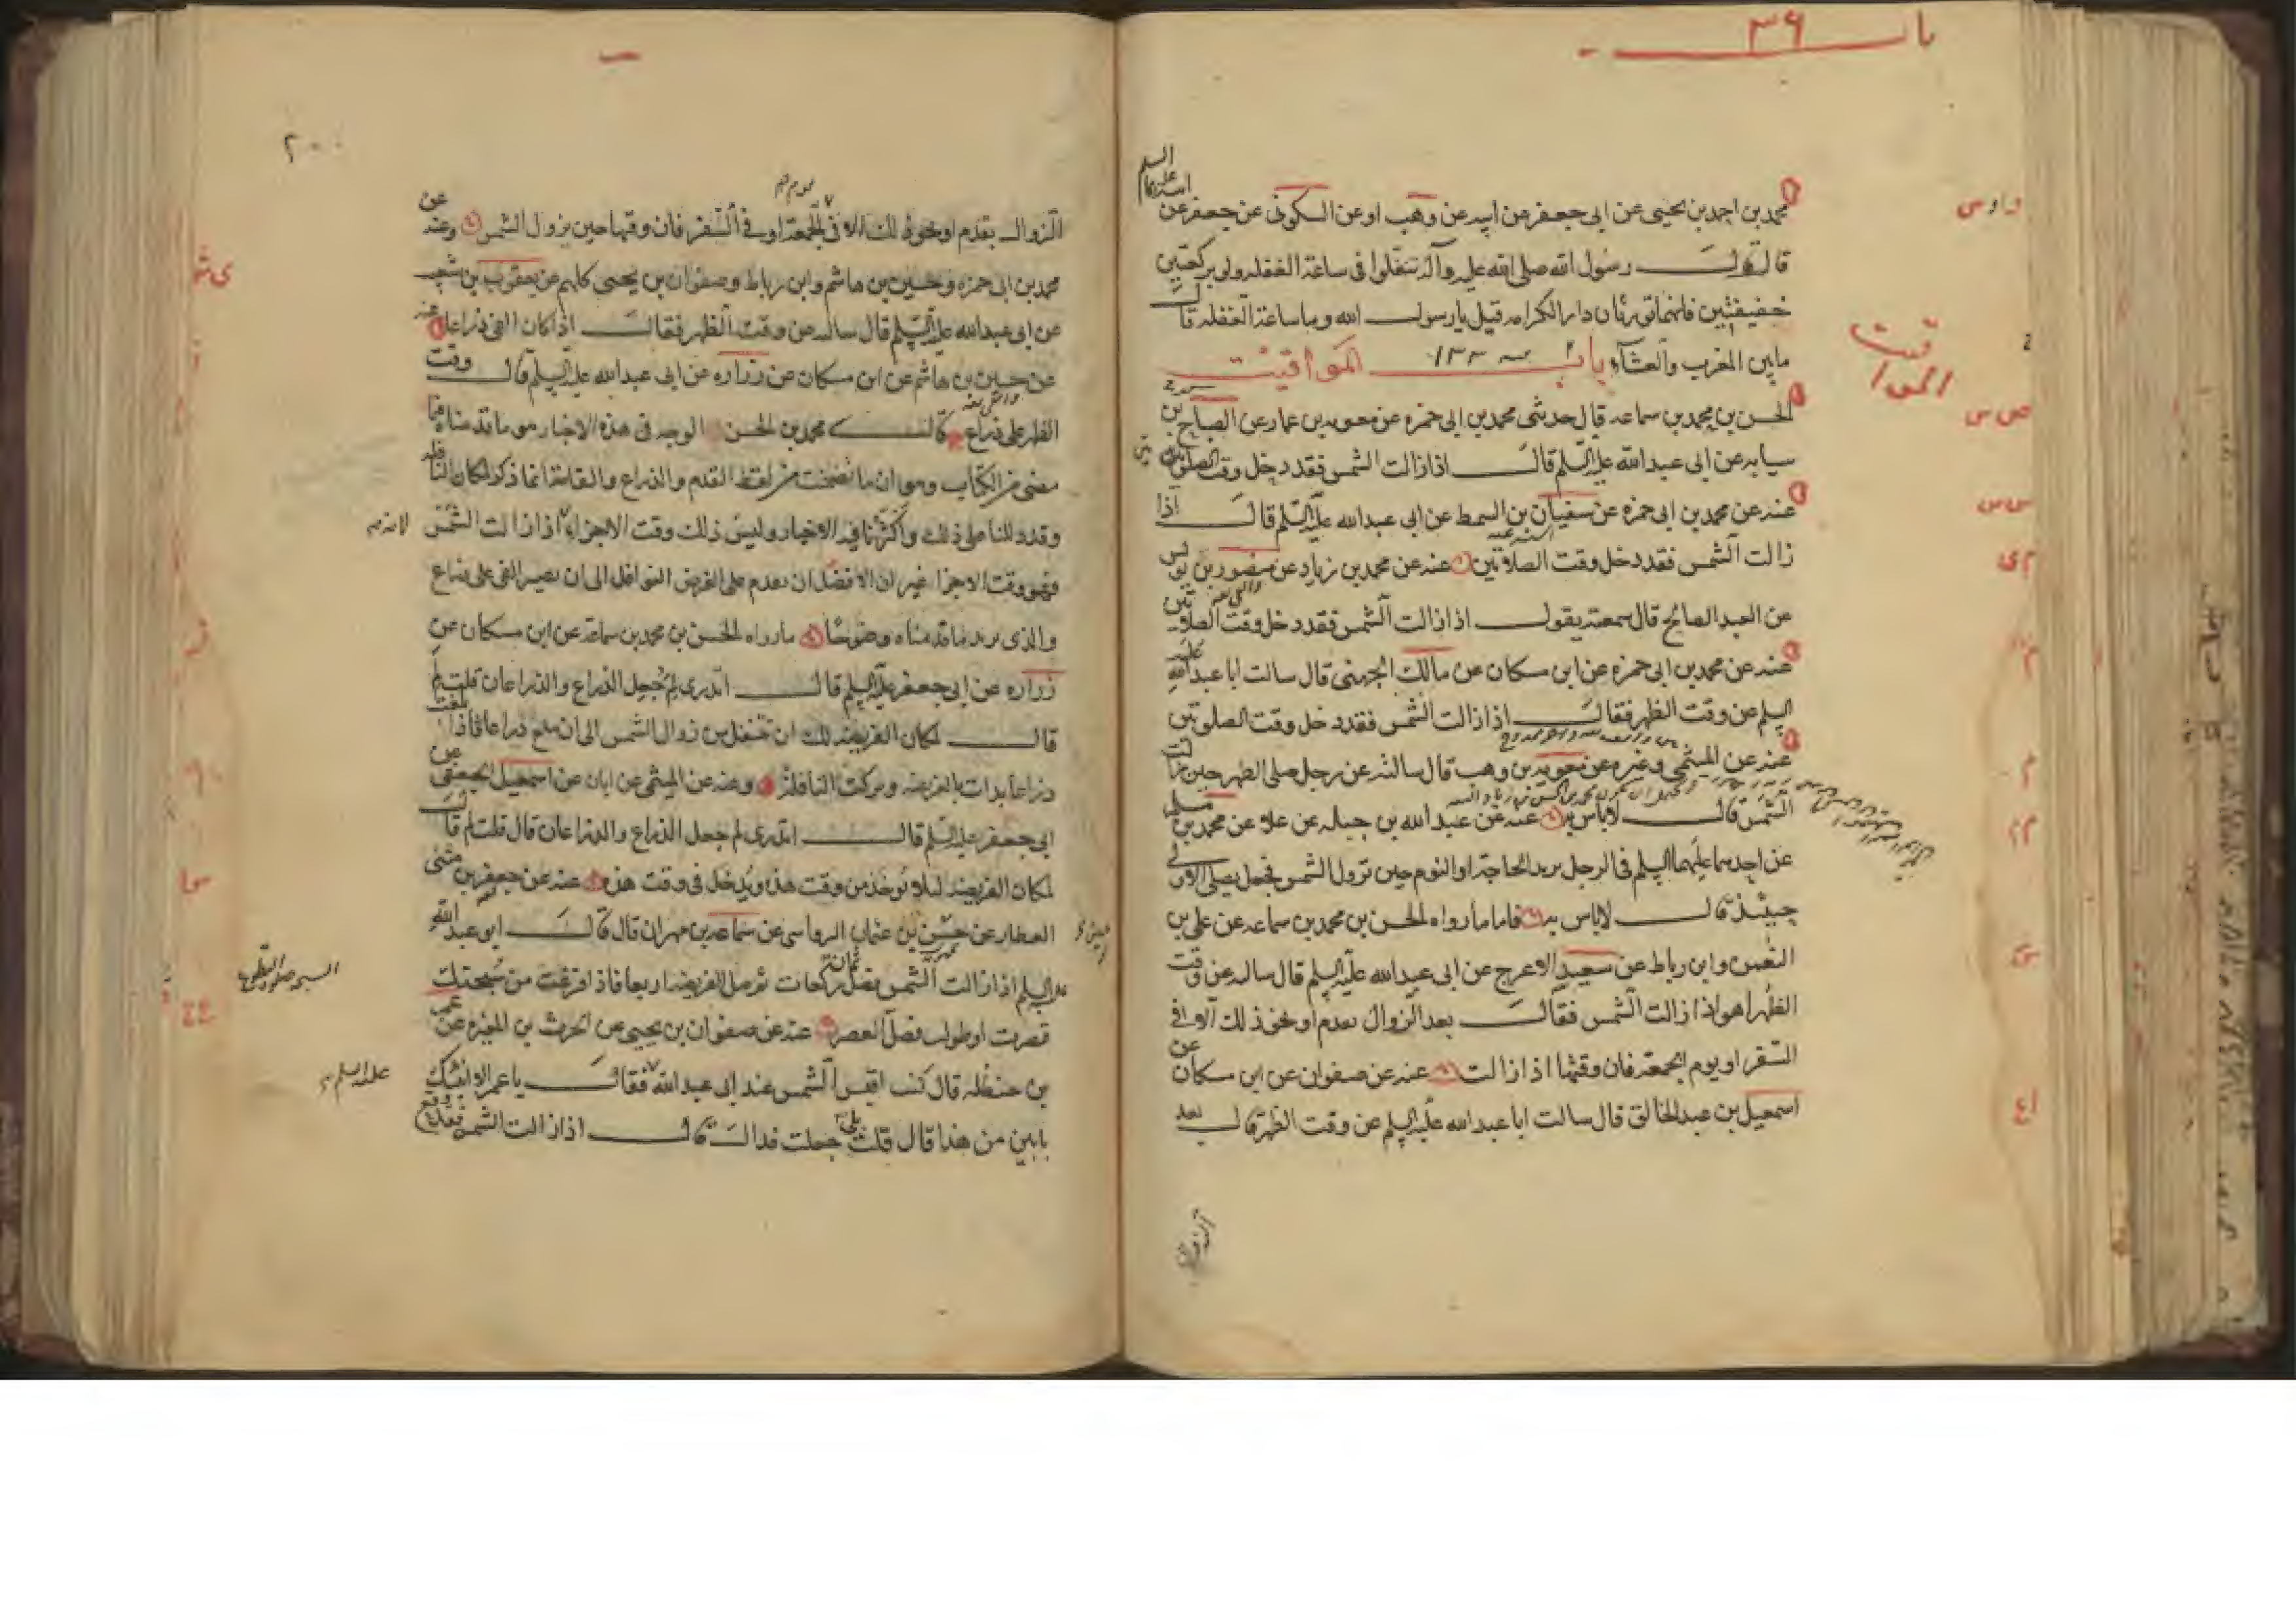 باب ٣۶
محمد بن احمد بن يحيى عن ابى جعفر عن ابيه عن وهب او عن السكونى عن جعفر عن
قال قال رسول الله صلى الله عليه وآله تنفلوا فى ساعة الغفله ولو بركعتين
خفيفتين فانهما تورثان دار الكرامه قيل يا رسول الله وما ساعة الغفله قال
ما بين المغرب والعشآء باب المواقيت
المواقيت
الحسن بن محمد بن سماعه قال حدثنى محمد بن ابى حمزه عن معويه بن عمار عن الصباح بن
سيابه عن ابى عبد الله عليه السلم قال اذا زالت الشمس فقد دخل وقت الصلوتين
عنه عن محمد بن ابى حمزه عن سفيان بن السمط عن ابى عبد الله عليه السلم قال اذا
زالت الشمس فقد دخل وقت الصلاتين عنه عن محمد بن زياد عن منصور بن يونس
عن العبد الصالح قال سمعته يقول اذا زالت الشمس فقد دخل وقت الصلاتين
عنه عن محمد بن ابى حمزه عن ابن مسكان عن مالك الجهنى قال سالت ابا عبد الله عليه
السلم عن وقت الظهر فقال اذا زالت الشمس فقد دخل وقت الصلوتين
عنه عن الميثمى وغيره عن معويه بن وهب قال سالته عن رجل صلى الظهر حين زالت
الشمس قال لا باس به عنه عن عبد الله بن جبله عن علا عن محمد بن مسلم
عن احدهما عليهما السلم فى الرجل يريد الحاجة او النوم حين تزول الشمس فجعل يصلى الاولى
حينئذ قال لا باس به فاما ما رواه الحسن بن محمد بن سماعه عن على بن
النعمن وابن رباط عن سعيد الاعرج عن ابى عبد الله عليه السلم قال ساله عن وقت
الظهر اهو اذا زالت الشمس فقال بعد الزوال بقدم او نحو ذلك الا فى
السفر او يوم الجمعة فان وقتها اذا زالت عنه عن صفوان عن ابن مسكان عن
اسمعيل بن عبد الخالق قال سالت ابا عبد الله عليه السلم عن وقت الظهر قال بعد
الزوال
٢٠٠
الزوال بقدم او نحو ذلك الا فى الجمعة او فى السفر فان وقتها حين يزول الشمس وعنه عن
محمد بن ابى حمزه وحسين بن هاشم وابن رباط وصفوان بن يحيى كلهم عن يعقوب بن شعيب
عن ابى عبد الله عليه السلم قال ساله عن وقت الظهر فقال اذا كان الفى ذراعا عنه
عن حسين بن هاشم عن ابن مسكان عن زراره عن ابى عبد الله عليه السلم قال وقت
الظهر على ذراع قال محمد بن الحسن الوجه فى هذه الاخبار هو ما قدمناه فيما
مضى من الكتاب وهو ان ما تضمنت من لفظ القدم والذراع والقامة انما ذكر لمكان النافله
وقد دللنا على ذلك واكثرنا فيه الاخبار وليس ذلك وقت الاجزاء اذا زالت الشمس
فهو وقت الاجزا غير ان الافضل ان يقدم على الفرض النوافل الى ان يصير الفى على ذراع
والذى يزيد ما قدمناه وضوحا ما رواه الحسن بن محمد بن سماعة عن ابن مسكان عن
زراره عن ابى جعفر عليه السلم قال اتدرى لم جعل الذراع والذراعان قلت لم
قال لمكان الفريضه لك ان تتنفل من زوال الشمس الى ان يبلغ ذراعا فاذا بلغت
ذراعا بدات بالفريضه وتركت النافلة وعنه عن الميثمى عن ابان عن اسمعيل الجعفى عن
ابى جعفر عليه السلم قال اتدرى لم جعل الذراع والذراعان قال قلت لم قال
لمكان الفريضه لئلا يؤخذ من وقت هذه ويدخل فى وقت هذه عنه عن جعفر بن مثنى
العطار عن حسين بن عثمان الرواسى عن سماعه بن مهران قال قال ابو عبد الله
عليه السلم اذا زالت الشمس فصل ثمان ركعات ثم صل الفريضه اربعا فاذا فرغت من سبحتك
قصرت او طولت فصل العصر عنه عن صفوان بن يحيى عن الحرث بن المغيره عن عمر
بن حنظله قال كنت اقيس الشمس عند ابى عبد الله فقال يا عمر الا انبئك
بابين من هذا قال قلت بلى جعلت فداك قال اذا زالت الشمس فقد وقع
عليه السلم